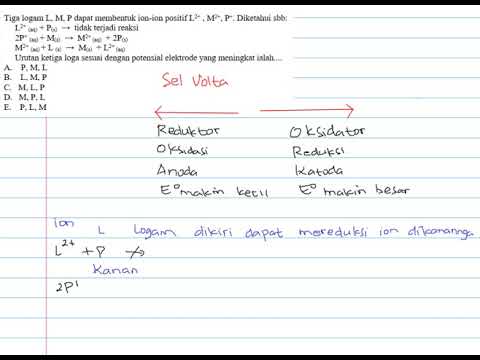 Tiga logam L, M, P dapat membentuk ion-ion positif L²⁺ , M²⁺, P⁺. Diketahui sbb:
L²⁺ (aq) + P(s) → tidak terjadi reaksi
2P⁺ (aq) + M(s) → M²⁺ (aq) + 2P(s)
M²⁺ (aq) + L (s) → M(s) + L²⁺(aq)
Urutan ketiga loga sesuai dengan potensial elektrode yang meningkat ialah....
A. P, M, L
B. L, M, P
C. M, L, P
D. M, P, L
E. P, L, M
Sel Volta
Reduktor Oksidator
Oksidasi Reduksi
Anoda Katoda
E° makin kecil E° makin besar
ion L Logam dikiri dapat mereduksi ion dikanannya
L²⁺ + P ↛
Kanan
2P⁺